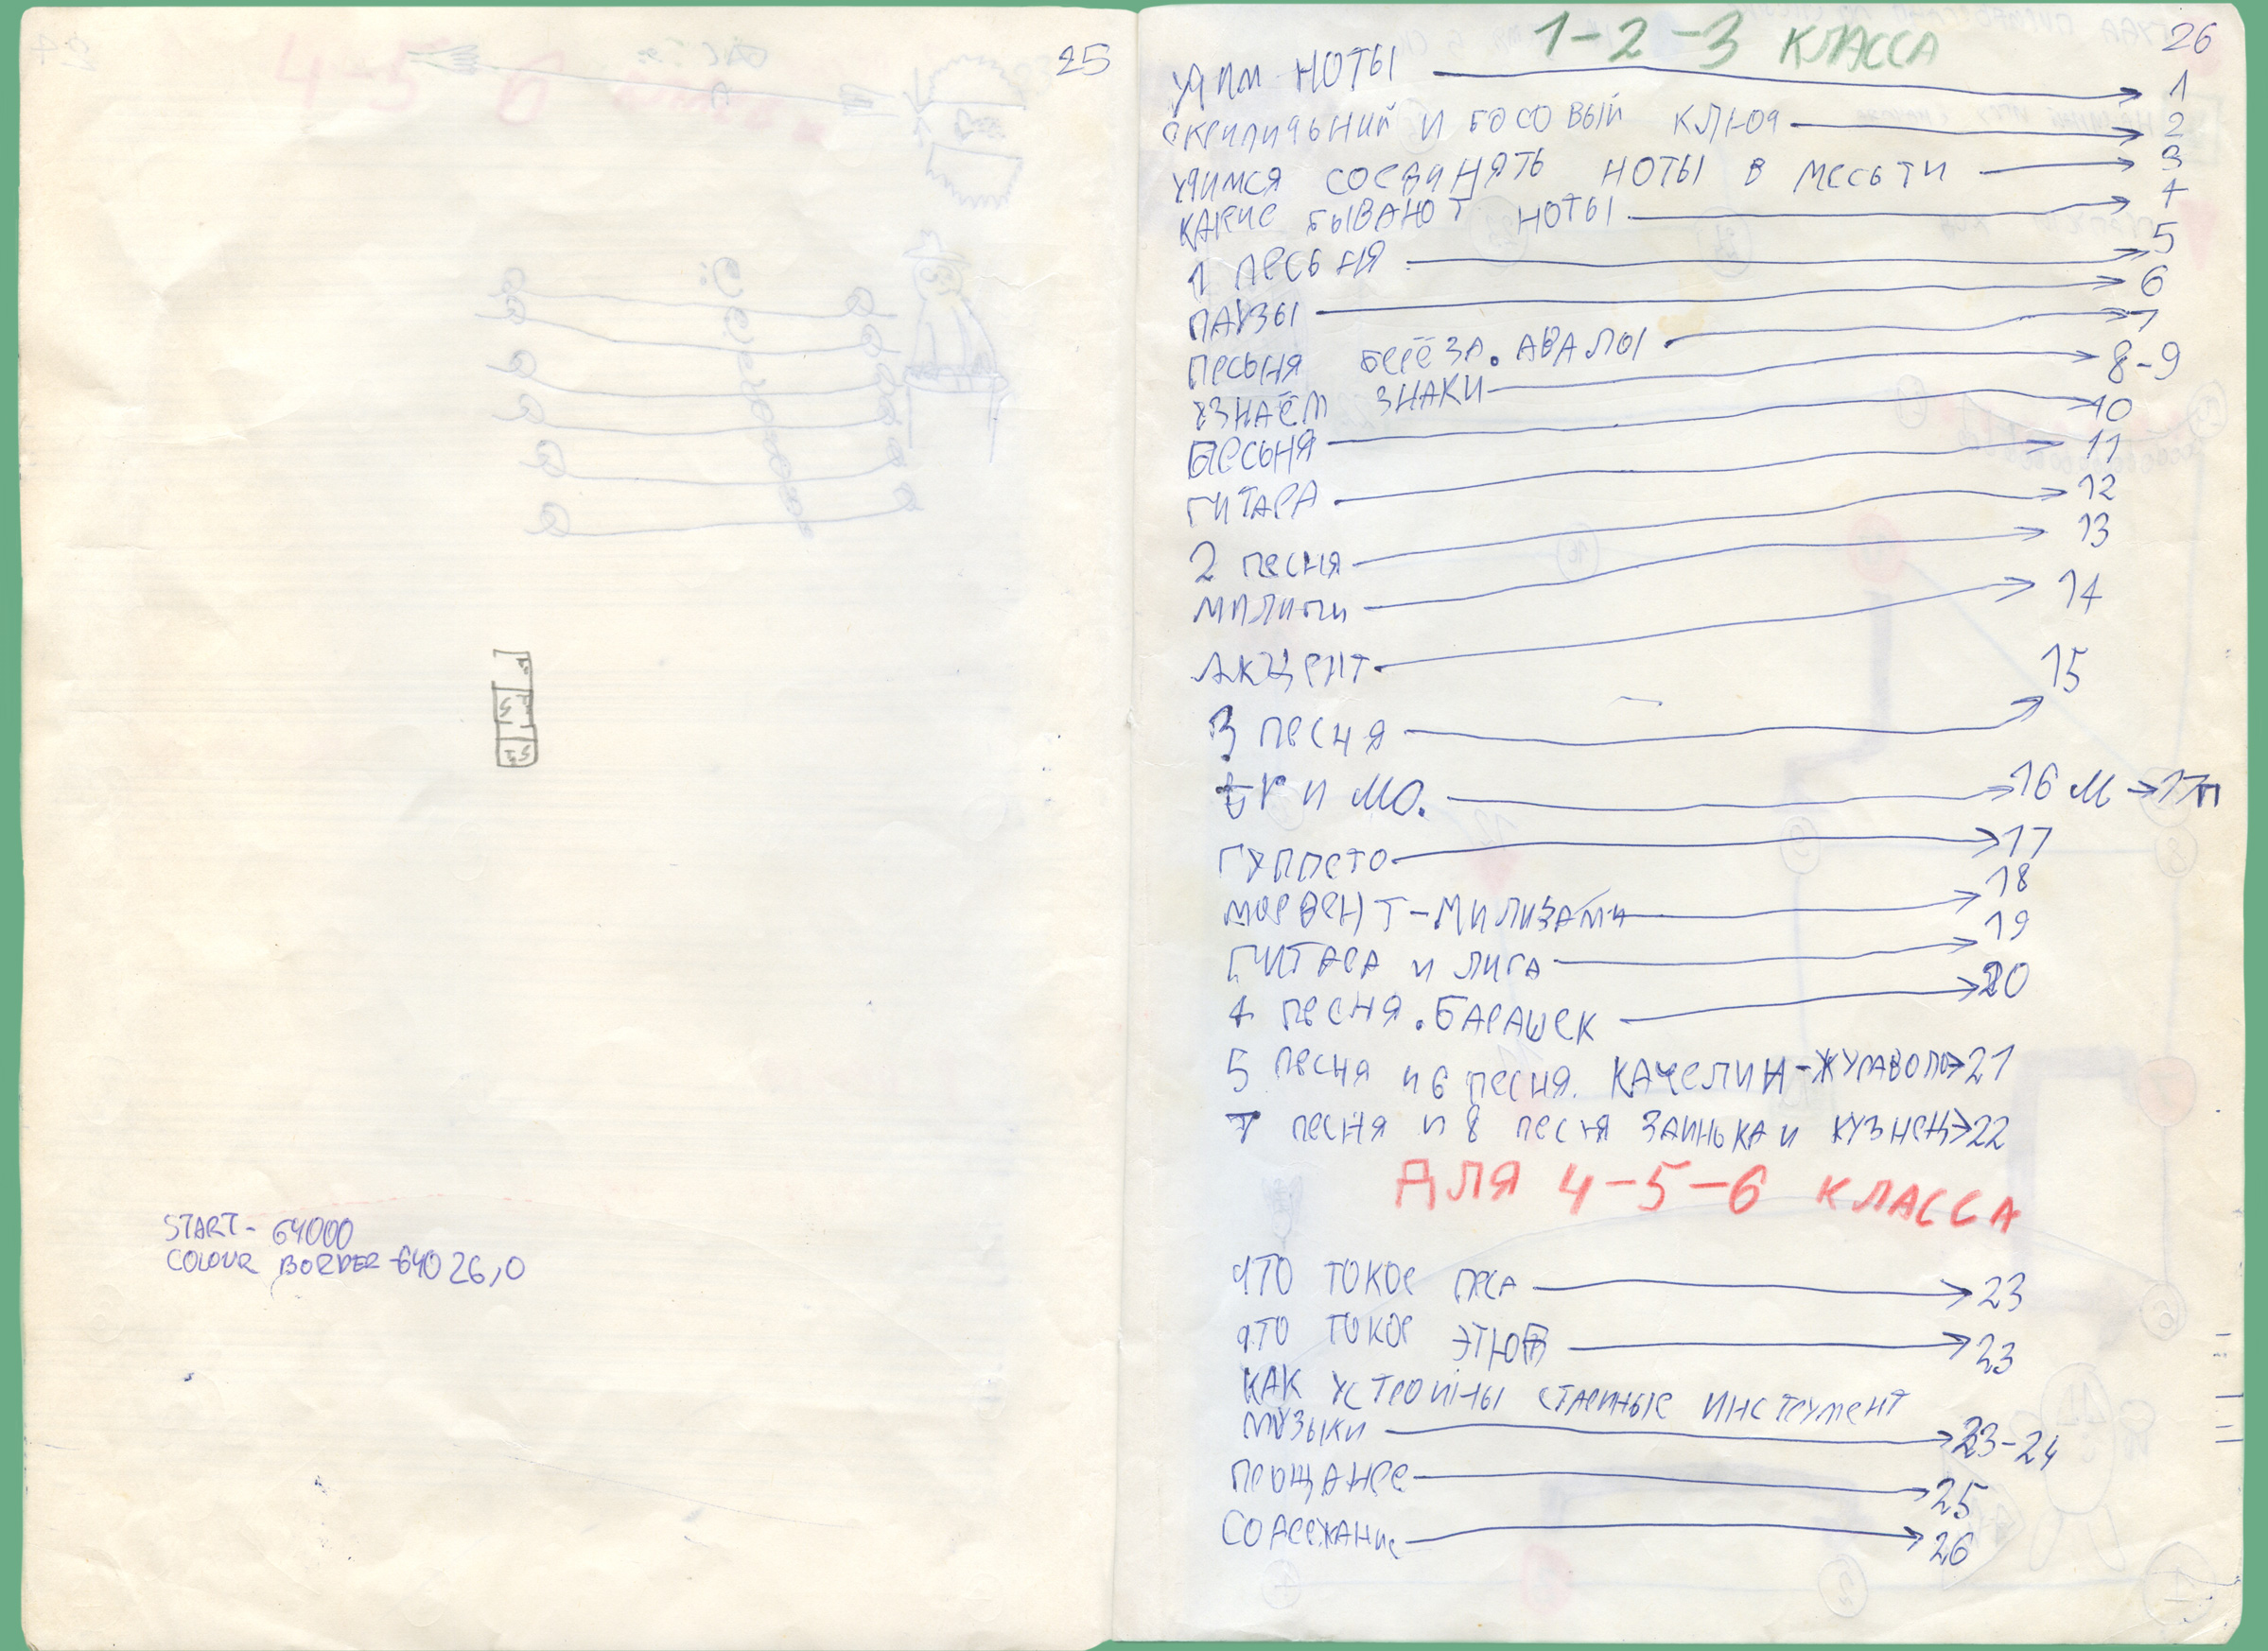 25
START - 64000
COLOUR BORDER - 64026,0
26
1-2-3 КЛАССА
УЧИМ НОТЫ → 1
СКРИПИЧЬНИЙ И БОСОВЫЙ КЛЮЧ → 2
УЧИМСЯ СОЕДИНЯТЬ НОТЫ В МЕСЬТИ → 3
КАКИЕ БЫВАЮТ НОТЫ → 4
1 ПЕСЬНЯ → 5
ПАУЗЫ → 6
ПЕСЬНЯ БЕРЁЗА. → 7
УЗНАЁМ ЗНАКИ → 8-9
ПЕСЬНЯ → 10
ГИТАРА → 11
2 ПЕСНЯ → 12
→ 13
АКЦЕНТ → 14
3 ПЕСНЯ → 15
И МО. → 16 М → 17П
ГУППЕТО → 17
МОРДЕНТ-МИЛИЗАМИ → 18
ГИТАРА И ЛИГА → 19
4 ПЕСНЯ. БАРАШЕК → 20
5 ПЕСНЯ И 6 ПЕСНЯ. КАЧЕЛИ И-ЖУРАВОЛЬ → 21
7 ПЕСНЯ И 8 ПЕСНЯ ЗАИНЬКА И КУЗНЕЦ → 22
ДЛЯ 4-5-6 КЛАССА
ЧТО ТОКОЕ ПЕСА → 23
ЧТО ТОКОЕ ЭТЮД → 23
КАК УСТРОЙНЫ СТАРИНЫЕ ИНСТРУМЕНТ
МУЗЫКИ → 23-24
ПРОЩАНЕЕ → 25
СОДЕРЖАНИЕ → 26